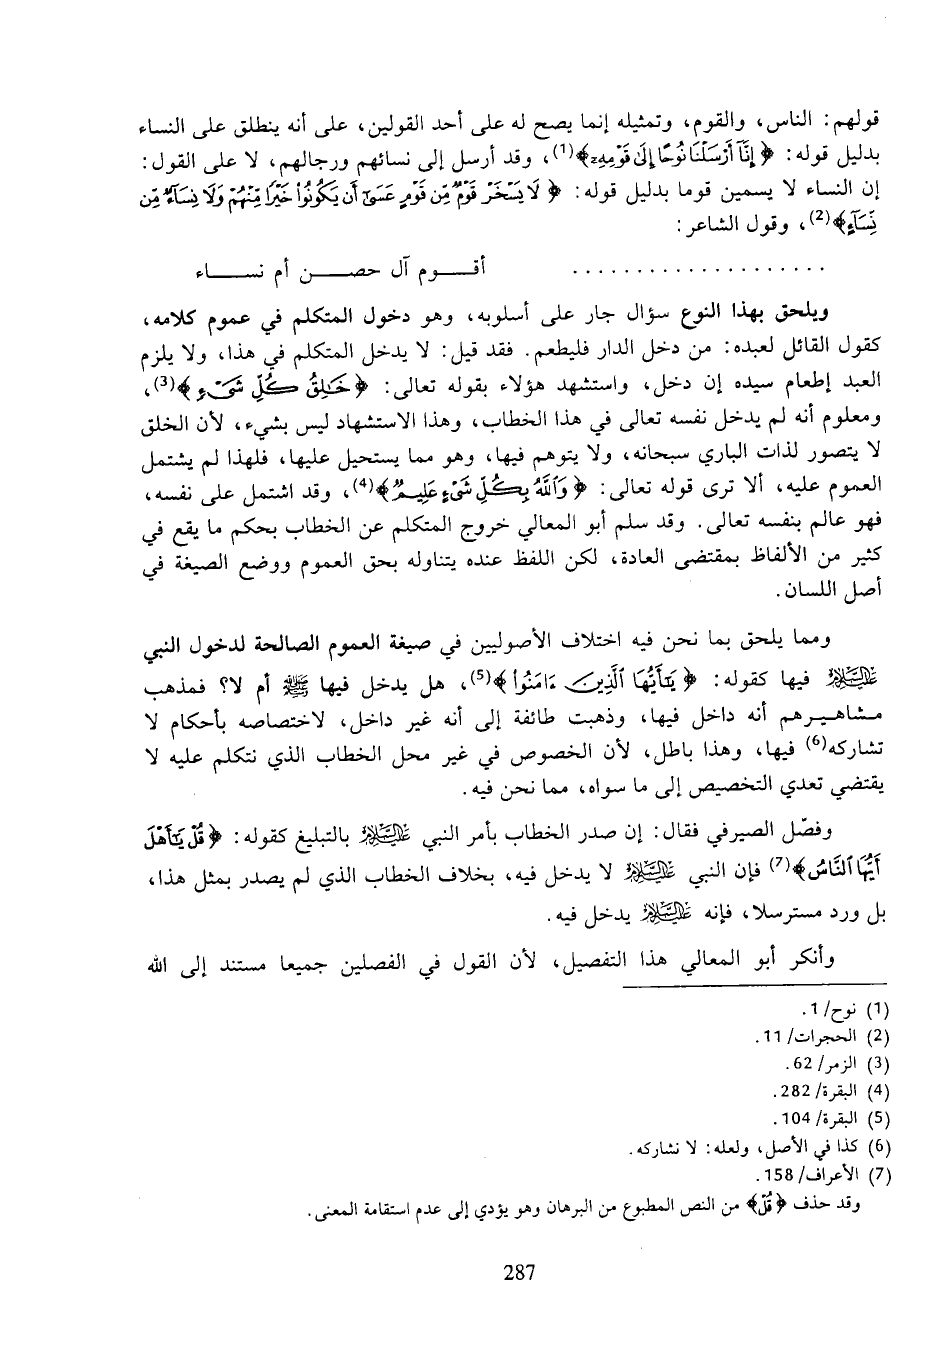 قولهم: الناس، والقوم، وتمثيله إنما يصح له على أحد القولين، على أنه ينطلق على النساء
بدليل قوله: ﴿إِنَّآ أَرْسَلْنَا نُوحًا إِلَىٰ قَوْمِهِۦ﴾(1)، وقد أرسل إلى نسائهم ورجالهم، لا على القول:
إن النساء لا يسمين قوما بدليل قوله: ﴿لَا يَسْخَرْ قَوْمٌ مِّن قَوْمٍ عَسَىٰٓ أَن يَكُونُوا۟ خَيْرًا مِّنْهُمْ وَلَا نِسَآءٌ مِّن
نِّسَآءٍ﴾(2)، وقول الشاعر:
. . . . . . . . . . . . . . . . . . . . أقـــوم آل حصـــن أم نســـاء
ويلحق بهذا النوع سؤال جار على أسلوبه، وهو دخول المتكلم في عموم كلامه،
كقول القائل لعبده: من دخل الدار فليطعم. فقد قيل: لا يدخل المتكلم في هذا، ولا يلزم
العبد إطعام سيده إن دخل، واستشهد هؤلاء بقوله تعالى: ﴿خَٰلِقُ كُلِّ شَىْءٍ﴾(3)،
ومعلوم أنه لم يدخل نفسه تعالى في هذا الخطاب، وهذا الاستشهاد ليس بشيء، لأن الخلق
لا يتصور لذات الباري سبحانه، ولا يتوهم فيها، وهو مما يستحيل عليها، فلهذا لم يشتمل
العموم عليه، ألا ترى قوله تعالى: ﴿وَٱللَّهُ بِكُلِّ شَىْءٍ عَلِيمٌ﴾(4)، وقد اشتمل على نفسه،
فهو عالم بنفسه تعالى. وقد سلم أبو المعالي خروج المتكلم عن الخطاب بحكم ما يقع في
كثير من الألفاظ بمقتضى العادة، لكن اللفظ عنده يتناوله بحق العموم ووضع الصيغة في
أصل اللسان.
ومما يلحق بما نحن فيه اختلاف الأصوليين في صيغة العموم الصالحة لدخول النبي
عليه السلام فيها كقوله: ﴿يَٰٓأَيُّهَا ٱلَّذِينَ ءَامَنُوا۟﴾(5)، هل يدخل فيها ﷺ أم لا؟ فمذهب
مشاهيرهم أنه داخل فيها، وذهبت طائفة إلى أنه غير داخل، لاختصاصه بأحكام لا
تشاركه(6) فيها، وهذا باطل، لأن الخصوص في غير محل الخطاب الذي نتكلم عليه لا
يقتضي تعدي التخصيص إلى ما سواه، مما نحن فيه.
وفصّل الصيرفي فقال: إن صدر الخطاب بأمر النبي عليه السلام بالتبليغ كقوله: ﴿قُلْ يَٰٓأَهْلَ
أَيُّهَا ٱلنَّاسُ﴾(7) فإن النبي عليه السلام لا يدخل فيه، بخلاف الخطاب الذي لم يصدر بمثل هذا،
بل ورد مسترسلا، فإنه عليه السلام يدخل فيه.
وأنكر أبو المعالي هذا التفصيل، لأن القول في الفصلين جميعا مستند إلى الله
(1) نوح/ 1.
(2) الحجرات/ 11.
(3) الزمر/ 62.
(4) البقرة/ 282.
(5) البقرة/ 104.
(6) كذا في الأصل، ولعله: لا نشاركه.
(7) الأعراف/ 158.
وقد حذف ﴿قُلْ﴾ من النص المطبوع من البرهان وهو يؤدي إلى عدم استقامة المعنى.
287